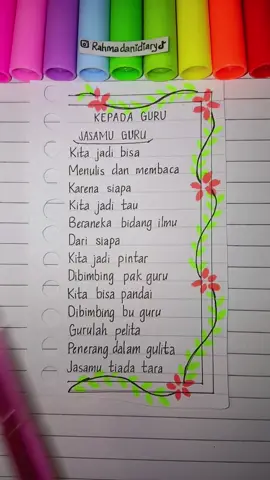 @Rahmadanidiary
KEPADA GURU
JASAMU GURU
Kita jadi bisa
Menulis dan membaca
Karena siapa
Kita jadi tau
Beraneka bidang ilmu
Dari siapa
Kita jadi pintar
Dibimbing pak guru
Kita bisa pandai
Dibimbing bu guru
Gurulah pelita
Penerang dalam gulita
Jasamu tiada tara